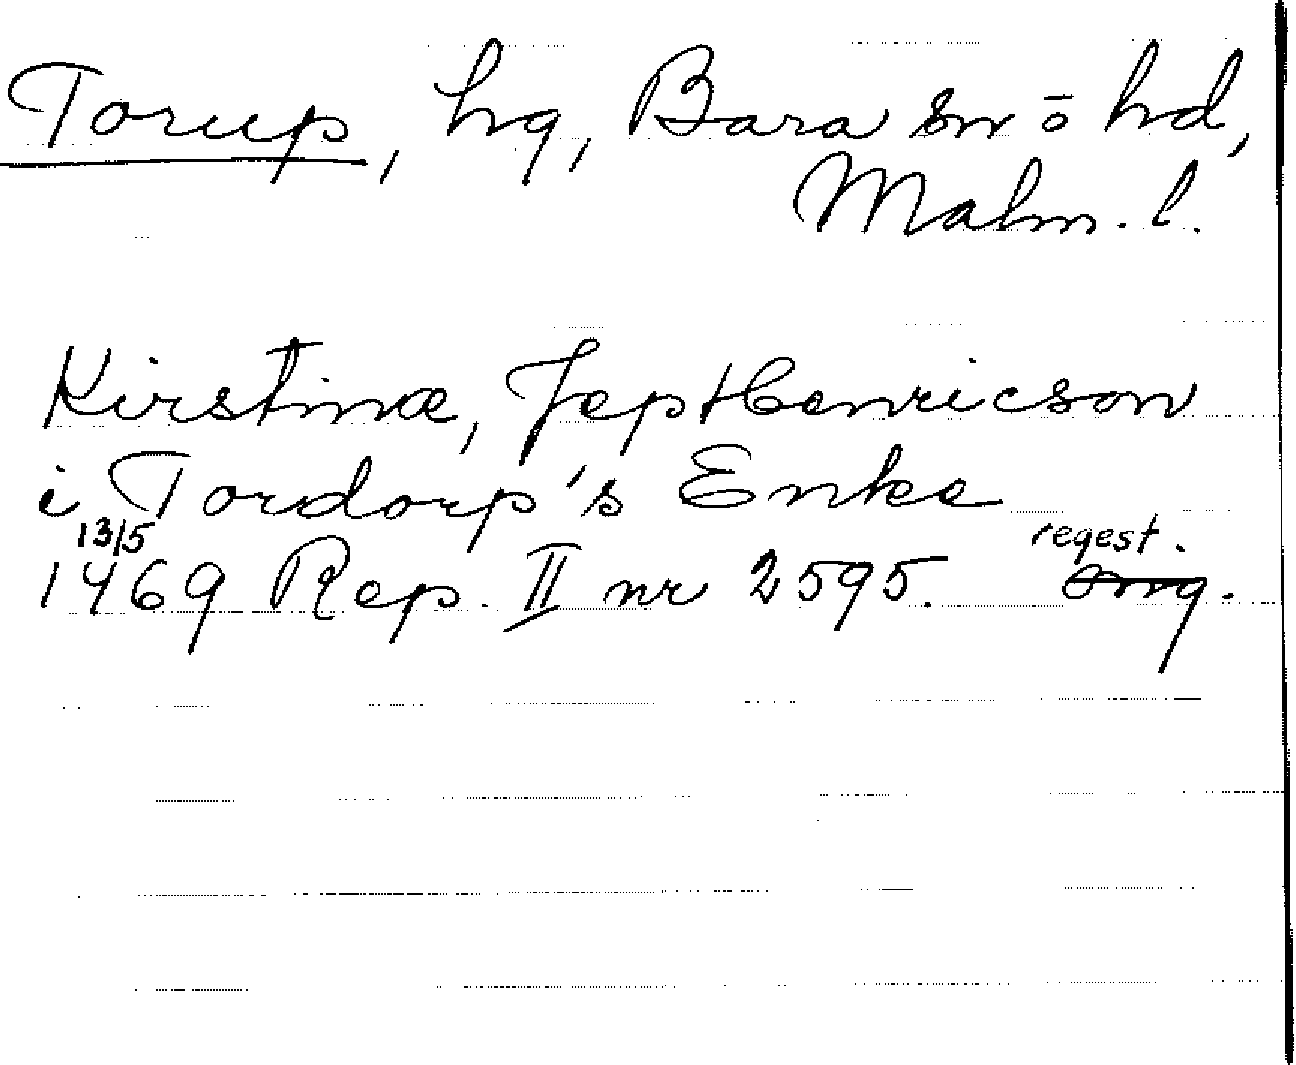 Torup, hg, Bara sn o hd,
Malm. l.
Kirstinæ, Jep Henricson
i Tordorp's Enke
13/5
regest.
1469 Rep. II nr 2595. omg.